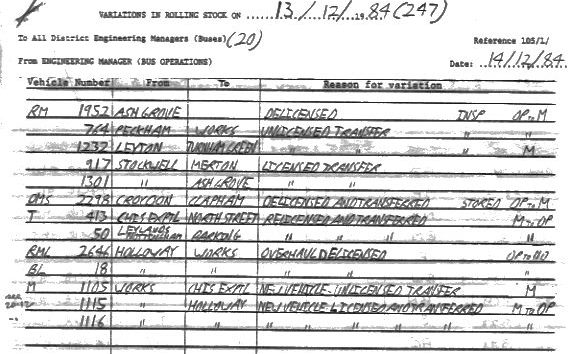 VARIATIONS IN ROLLING STOCK ON 13/12/1984 (247)
To All District Engineering Managers (Buses) (20)
Reference 105/1/
From ENGINEERING MANAGER (BUS OPERATIONS) Date: 14/12/84
Vehicle Number From To Reason for variation
RM 1952 ASH GROVE DELICENSED INSP OP to M
764 PECKHAM WORKS UNLICENSED TRANSFER " "
1237 LEYTON TURNHAM GREEN " " " M
917 STOCKWELL MERTON LICENSED TRANSFER
1301 " ASH GROVE " "
DMS 2298 CROYDON CLAPHAM DELICENSED AND TRANSFERRED STORED OP to M
T 413 CHIS EXPTL NORTH STREET RELICENSED AND TRANSFERRED M to OP
50 LEYLANDS NOTTINGHAM BARKING " " " "
RML 2646 HOLLOWAY WORKS OVERHAUL DELICENSED OP to
BL 18 " " " " "
M 1105 WORKS CHIS EXPTL NEW VEHICLE - UNLICENSED TRANSFER M
1115 " HOLLOWAY NEW VEHICLE - LICENSED AND TRANSFERRED M to OP
1116 " " " " " "